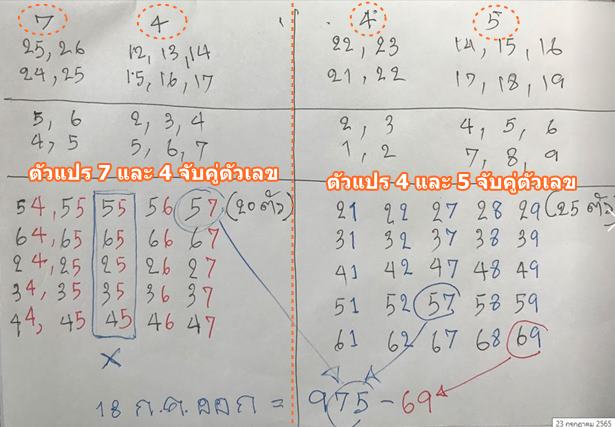 7 4
25, 26 12, 13, 14
24, 25 15, 16, 17
5, 6 2, 3, 4
4, 5 5, 6, 7
ตัวแปร 7 และ 4 จับคู่ตัวเลข
54, 55 55 56 57 (20 ตัว)
64, 65 65 66 67
24, 25 25 26 27
34, 35 35 36 37
44, 45 45 46 47
X
4 5
22, 23 14, 15, 16
21, 22 17, 18, 19
2, 3 4, 5, 6
1, 2 7, 8, 9
ตัวแปร 4 และ 5 จับคู่ตัวเลข
21 22 27 28 29 (25 ตัว
31 32 37 38 39
41 42 47 48 49
51 52 57 58 59
61 62 67 68 69
18 ก.ค. ออก = 975 - 69
23 กรกฎาคม 2565